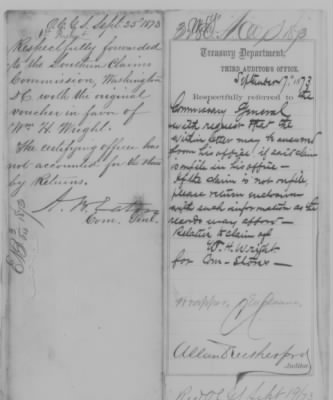 O.C.G.S. Sept. 25" 1873
Respectfully forwarded
to the Southern Claims
Commission, Washington
D.C. with the original
voucher in favor of
Wm H. Wright.
The certifying officer has
not accounted for the stores
by Returns.
Com. Genl.
Treasury Department,
THIRD AUDITOR'S OFFICE.
September 17, 1873
Respectfully referred to the
Commissary General
with request that the
within letter may be answered
from his office, if said claim
is on file in his office -
If the claim is not on file,
please return enclosure
with such information as the
records may afford -
Relative to claim of
W. H. Wright
for Com. Stores -
Allan Rutherford
Auditor.
Sept 19/73